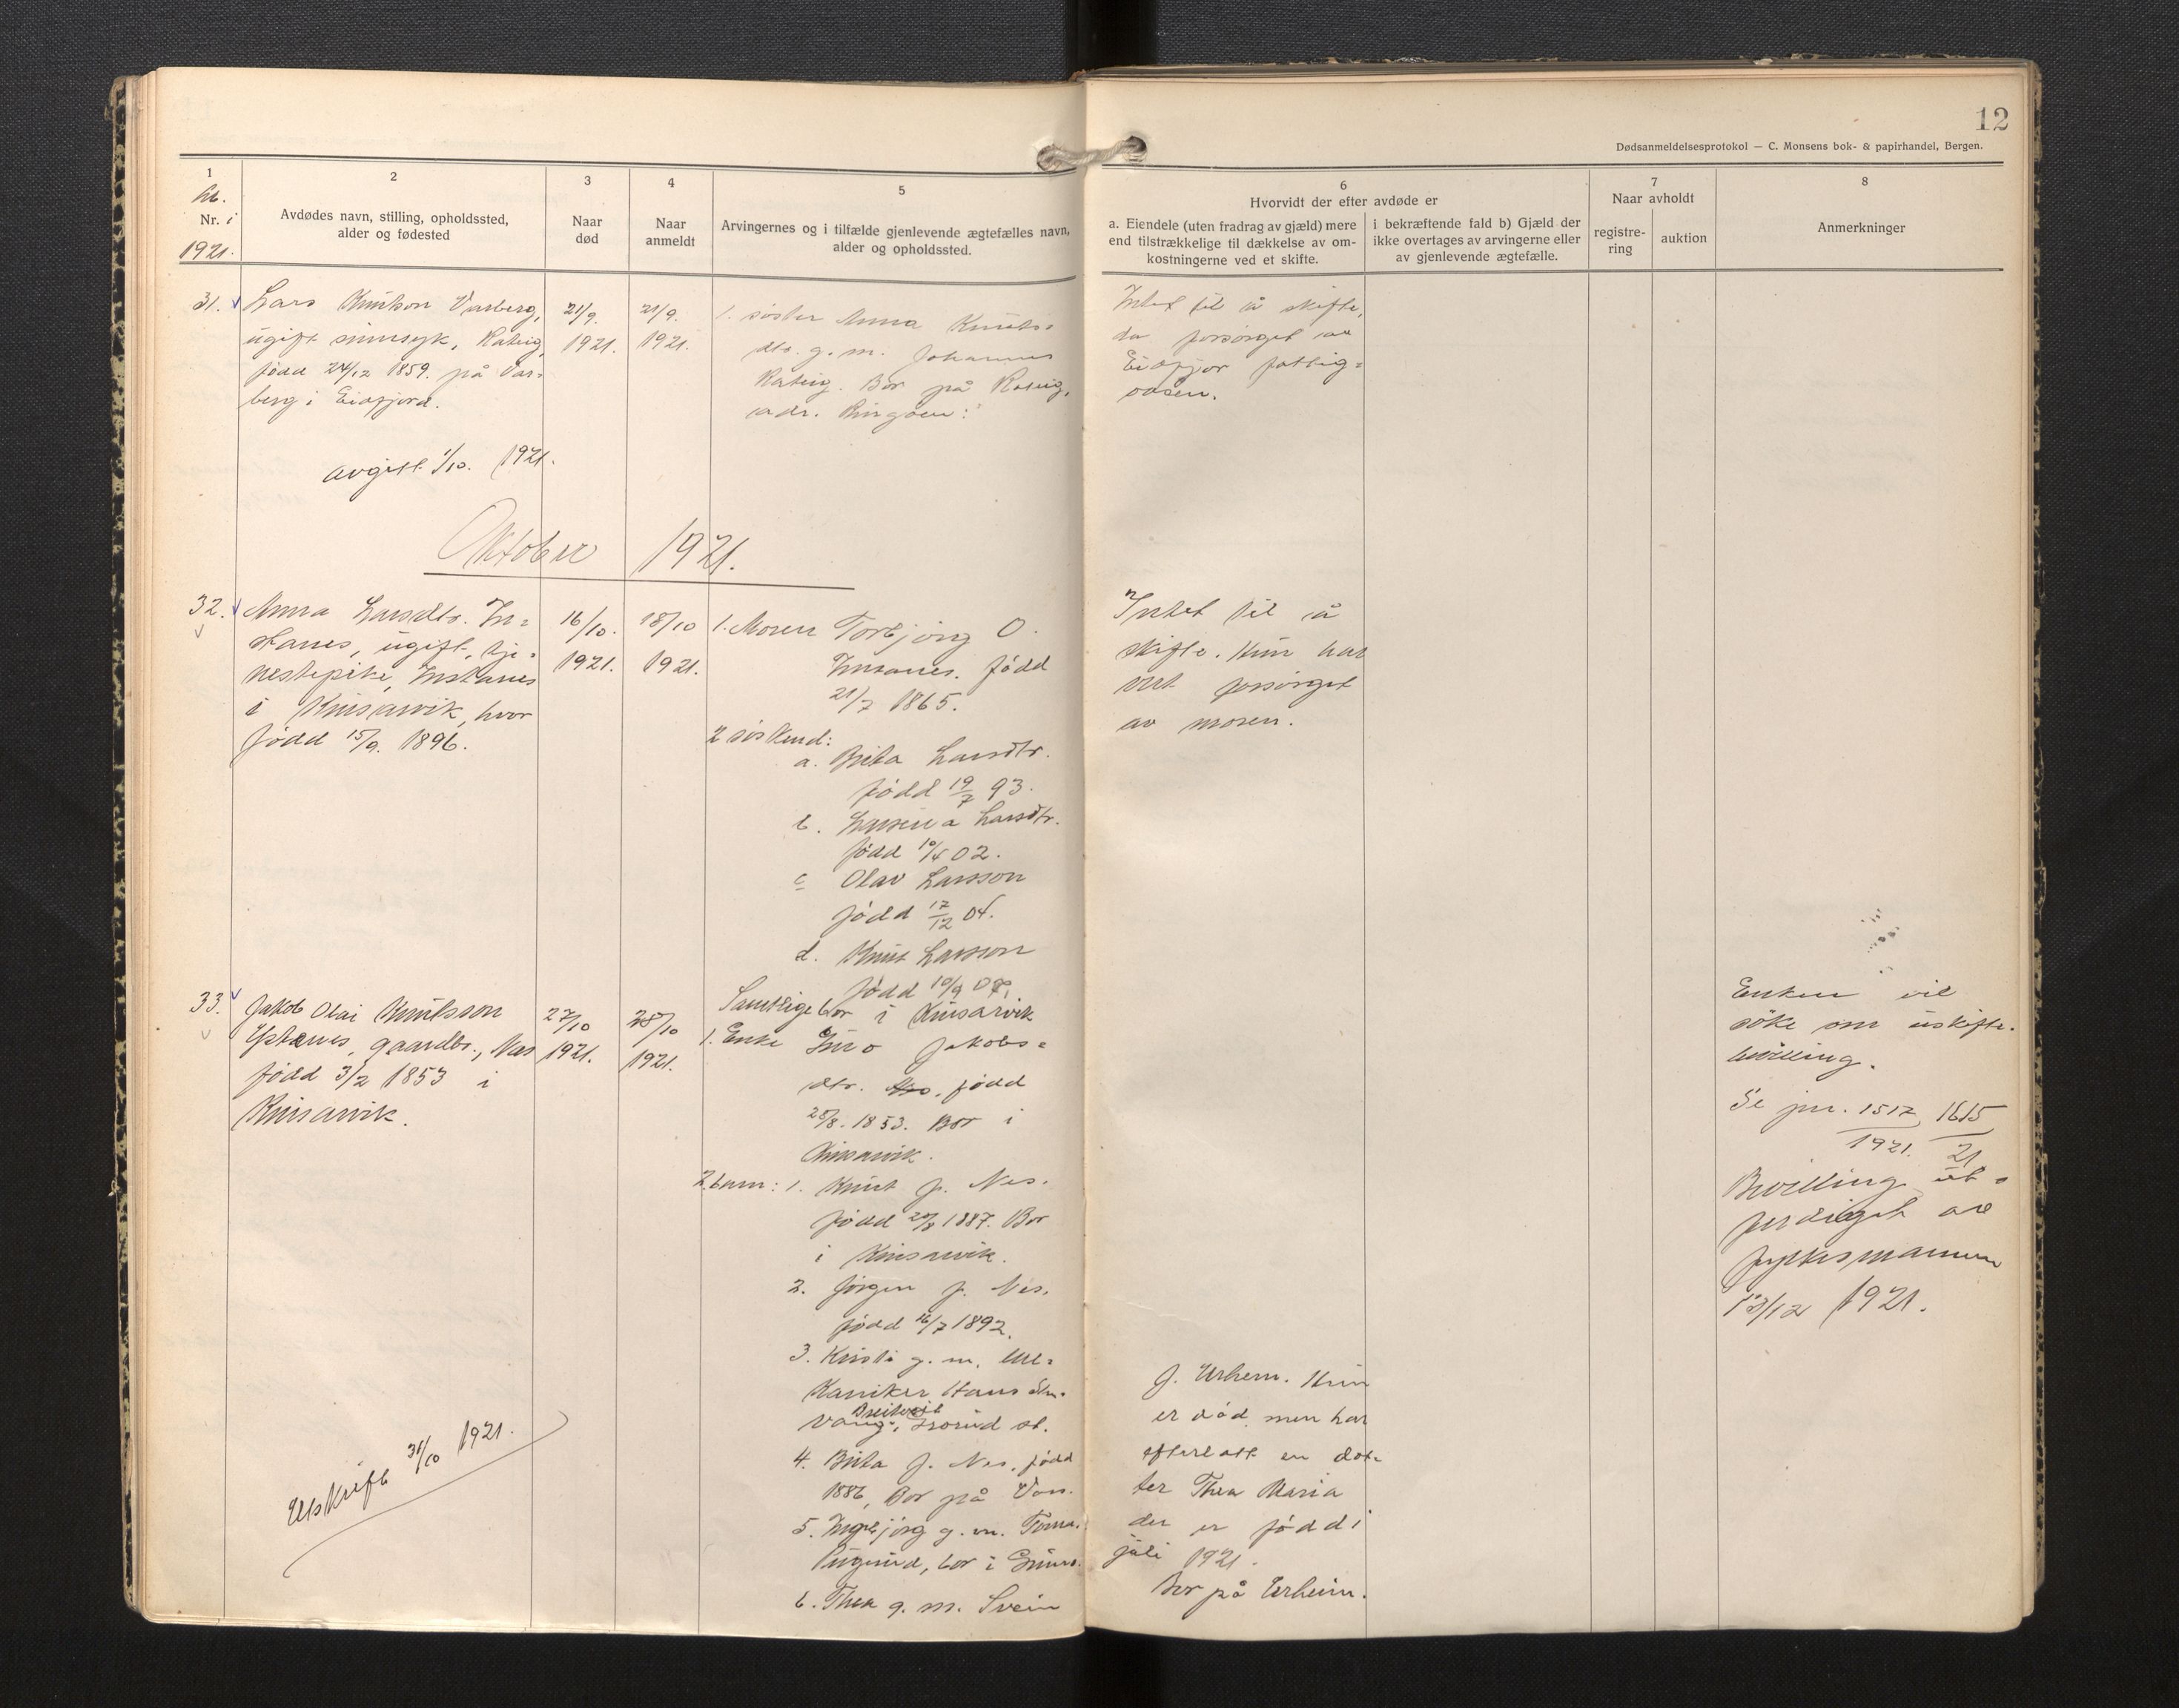 12
Dødsanmeldelsesprotokol — C. Monsens bok- & papirhandel, Bergen.
1
Nr. i
1921.
2
Avdødes navn, stilling, opholdssted,
alder og fødested
3
Naar
død
4
Naar
anmeldt
5
Arvingernes og i tilfælde gjenlevende ægtefælles navn,
alder og opholdssted.
6
Hvorvidt der efter avdøde er
a. Eiendele (uten fradrag av gjæld) mere
end tilstrækkelige til dækkelse av om-
kostningerne ved et skifte.
i bekræftende fald b) Gjæld der
ikke overtages av arvingerne eller
av gjenlevende ægtefælle.
7
Naar avholdt
registre-
ring
auktion
8
Anmerkninger
31.
Lars Knutson Varberg,
ugift sinnsyk,
født 24/12 1859. på Var=
berg i Eidfjord.
21/9.
1921.
21/9.
1921.
1. søster Anna Knuts=
dtr. g.m. Johannes
Bor på
adr. Ringøen.
Intet til å skifte,
da forsørget av
Eidfjor fattig=
vesen.
avgitt 1/10. 1921.
Oktober 1921.
32.
Anna Larsdtr. In=
stanes, ugift, tje=
nestepike, Instanes
i Kinsarvik, hvor
født 15/9. 1896.
16/10.
1921.
18/10
1921.
1. Moren Torbjørg O.
Instanes. født
21/7 1865.
2 søskend:
a. Brita Larsdtr.
født 19/7 93.
b. Larsina Larsdtr.
født 02.
c Olav Larsson
født 17/12 04.
d. Knut Larsson
født 10/9
Samtlige bor i Kinsarvik
Intet til å
skifte. Hun har
vært forsørget
av moren.
33.
Jakob Olai Knutsson
gaardbr., Nes
født 3/2 1853 i
Kinsarvik.
27/10
1921.
28/10
1921.
1. Enke Guro Jakobs=
dtr. født
25/8. 1853. Bor i
Kinsarvik.
2. barn: 1. Knut J. Nes.
født 1887. Bor
i Kinsarvik.
2. Jørgen J. Nes.
født 16/7 1892.
3. Kristi g. m. me=
kaniker Hans
vang, st.
4. Brita J. Nes. født
1886, Bor på
5. Ingebjørg g. m.
bor i
6. Thea g. m. Svein
J. Urheim. Hun
er død men har
efterlatt en dat=
ter Thea Maria
der er født i
juli 1921.
Bor på Urheim.
Enken vil
søke om uskifte-
bevilling.
Se jnr. 1517/1921. 1615/21
Bevilling ut=
ferdiget av
fylkesmannen
13/12 1921.
Utskrift 31/10 1921.